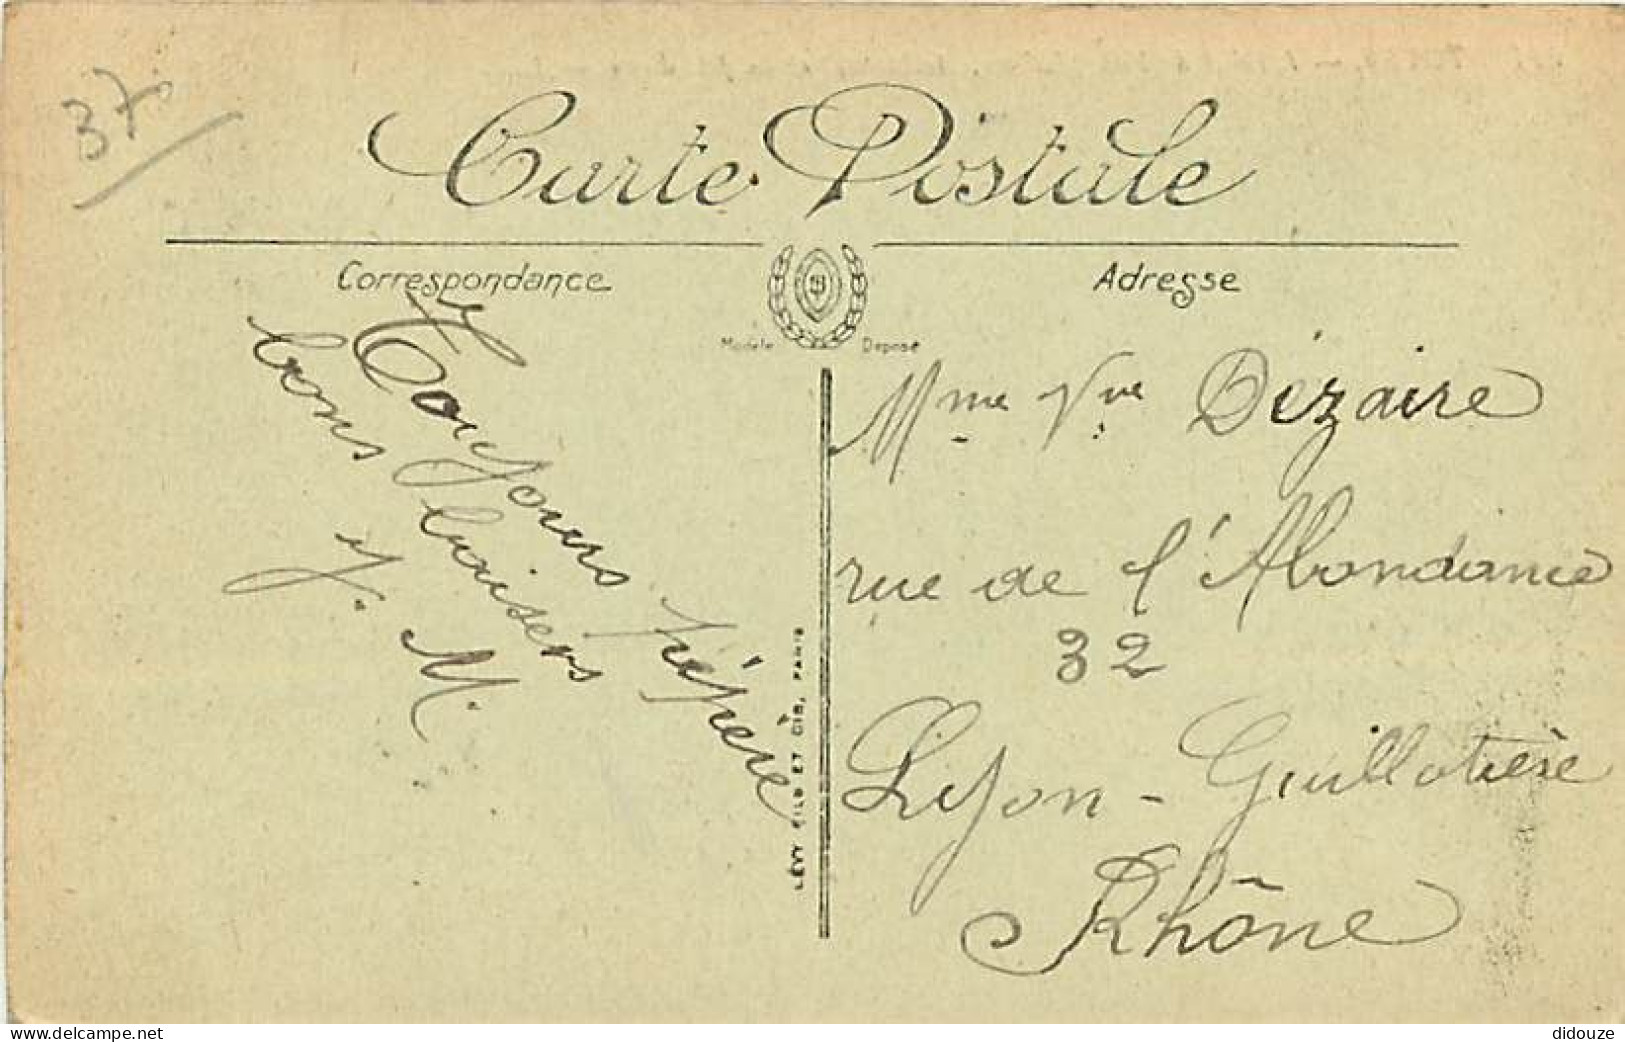 37
Carte Postale
Correspondance
Adresse
Modèle Déposé
Toujours
bons baisers
J. M.
Mme Vve Dézaire
rue de l'Abondance
32
Lyon - Guillotière
Rhône
LÉVY FILS ET CIE, PARIS
www.delcampe.net
didouze